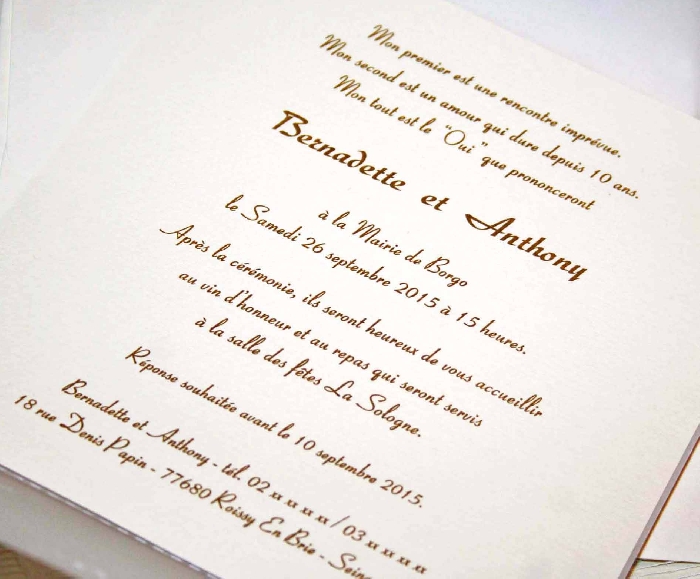 Mon premier est une rencontre imprévue.
Mon second est un amour qui dure depuis 10 ans.
Mon tout est le "Oui" que prononceront
Bernadette et Anthony
à la Mairie de Borgo
le Samedi 26 septembre 2015 à 15 heures.
Après la cérémonie, ils seront heureux de vous accueillir
au vin d'honneur et au repas qui seront servis
à la salle des fêtes La Sologne.
Réponse souhaitée avant le 10 septembre 2015.
Bernadette et Anthony - tél. 02 xx xx xx xx / 03 xx xx xx xx
18 rue Denis Papin - 77680 Roissy En Brie - Seine